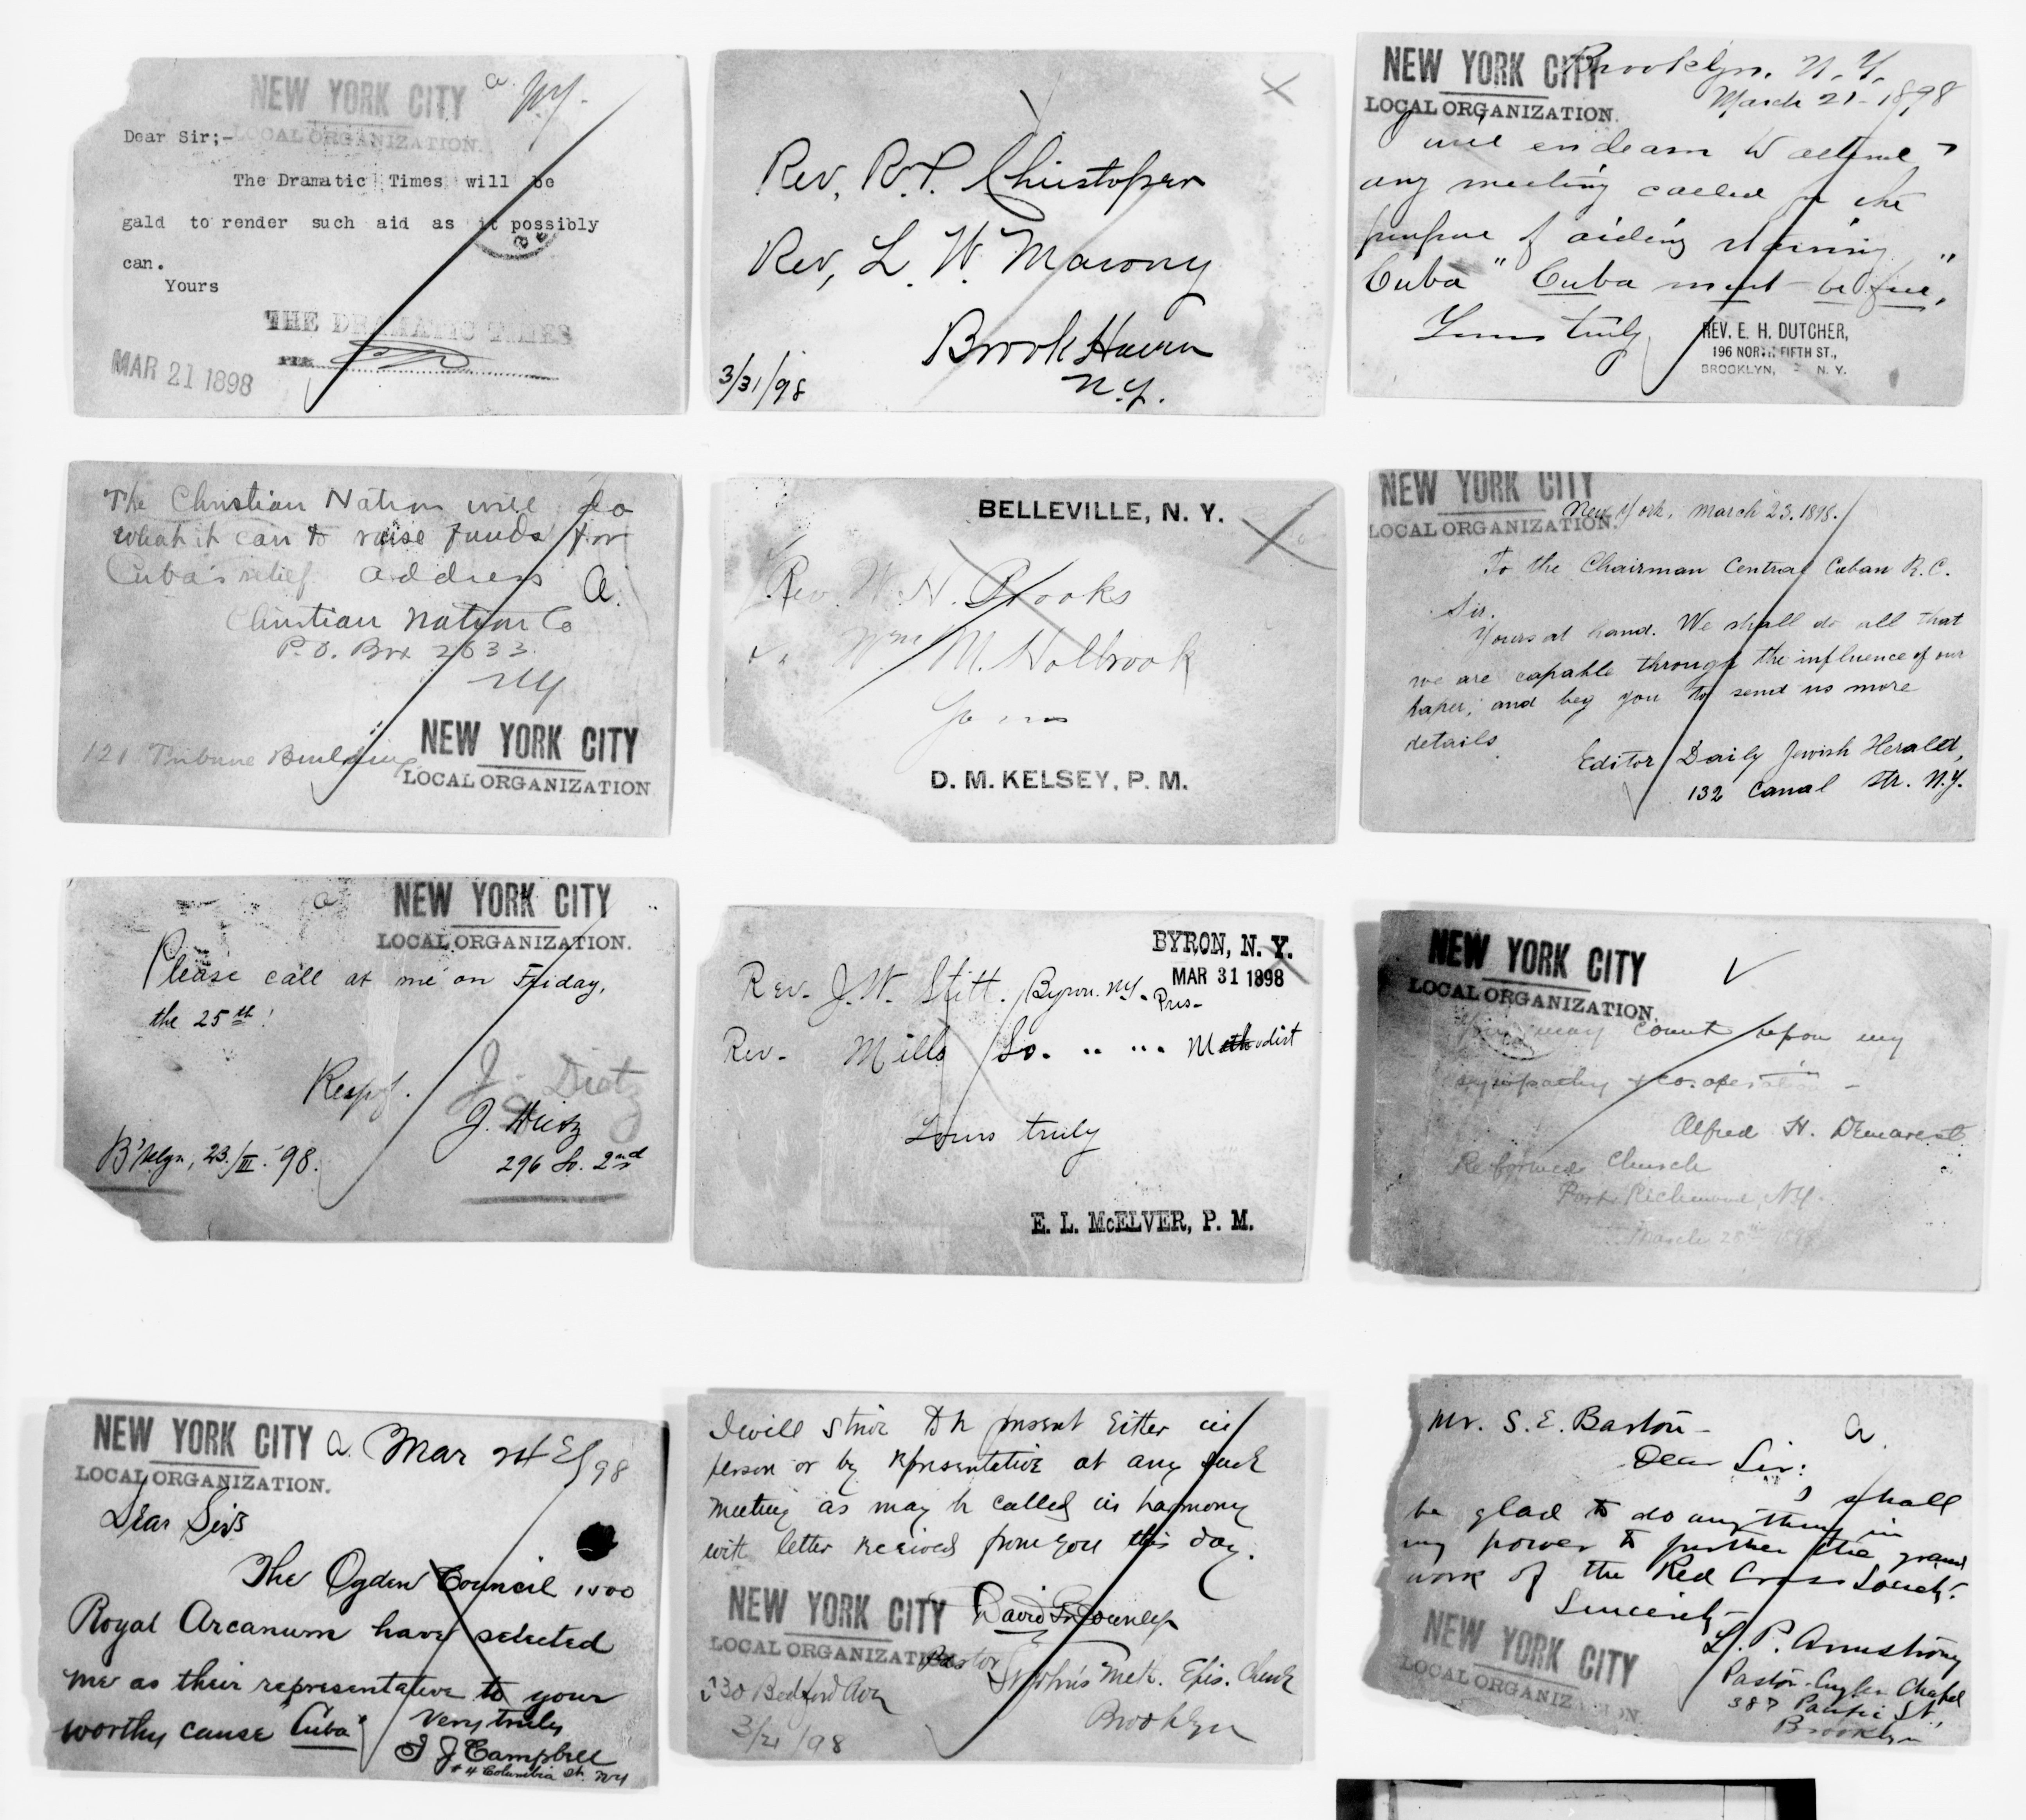 NEW YORK CITY
LOCAL ORGANIZATION.
a. NY.
Dear Sir;-
The Dramatic Times will be
gald to render such aid as it possibly
can.
Yours
THE DRAMATIC TIMES
PER
MAR 21 1898
Rev. R. P. Christopher
Rev, L. W.
Brook Haven
N.Y.
3/31/98
NEW YORK CITY
LOCAL ORGANIZATION.
Brooklyn, N. Y.
March 21-1898
I will endeavor to attend
any meeting called for the
purpose of aiding starving
Cuba "Cuba must be free,"
Yours truly
REV. E. H. DUTCHER,
196 NORTH FIFTH ST.,
BROOKLYN, N. Y.
The Christian Nation will do
what it can to raise funds for
Cuba's relief. Address
a.
Christian Nation Co
P.O. Box 2633
NY
121 Tribune Building
NEW YORK CITY
LOCAL ORGANIZATION
BELLEVILLE, N. Y.
Rev. W. H. Brooks
Wm M. Holbrook
Yours
D. M. KELSEY, P. M.
NEW YORK CITY
LOCAL ORGANIZATION.
New York, March 23. 1898.
To the Chairman Central Cuban R.C.
Sir.
Yours at hand. We shall do all that
we are capable through the influence of our
paper, and beg you to send us more
details.
Editor Daily Jewish Herald,
132 Canal str. N.Y.
a
NEW YORK CITY
LOCAL ORGANIZATION.
Please call at me on Friday,
the 25th!
Respf.
J. Dietz
J. Dietz
B'klyn, 23./III. '98.
296 So. 2nd
BYRON, N. Y.
MAR 31 1898
Rev. J. W. Stitt. Byron. NY. Pres-
Rev. Mills So. " " Methodist
Yours truly
E. L. McELVER, P. M.
NEW YORK CITY
LOCAL ORGANIZATION.
You may count upon my
sympathy & co-operation -
Alfred H. Demarest
Reformed Church
Port Richmond, N.Y.
March 28th 1898
NEW YORK CITY
LOCAL ORGANIZATION.
a. Mar 24 98
Dear Sirs
The Ogden Council 1500
Royal Arcanum have selected
me as their representative to your
worthy cause "Cuba"
Very truly
J J Campbell
#4 Columbia St. NY
I will strive to be present either in
person or by representative at any such
meeting as may be called in harmony
with letter received from you this day.
NEW YORK CITY
LOCAL ORGANIZATION
David
Pastor St John's Meth. Epis. Church
Bedford Ave
Brooklyn
3/21/98
Mr. S. E. Barton-
a.
Dear Sir:
I shall
be glad to do anything in
my power to further the grand
work of the Red Cross Society.
Sincerely
L. P. Armstrong
Pastor-Cuyler Chapel
387 Pacific St.,
Brooklyn
NEW YORK CITY
LOCAL ORGANIZATION